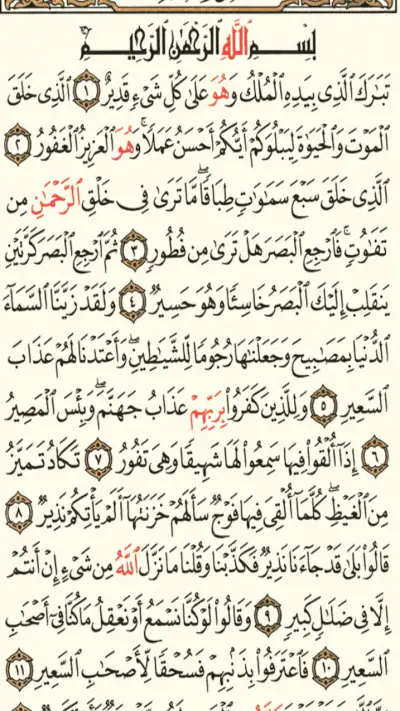 بِسْمِ اللَّهِ الرَّحْمَٰنِ الرَّحِيمِ
تَبَارَكَ الَّذِي بِيَدِهِ الْمُلْكُ وَهُوَ عَلَىٰ كُلِّ شَيْءٍ قَدِيرٌ ١ الَّذِي خَلَقَ
الْمَوْتَ وَالْحَيَاةَ لِيَبْلُوَكُمْ أَيُّكُمْ أَحْسَنُ عَمَلًا ۚ وَهُوَ الْعَزِيزُ الْغَفُورُ ٢
الَّذِي خَلَقَ سَبْعَ سَمَاوَاتٍ طِبَاقًا ۖ مَّا تَرَىٰ فِي خَلْقِ الرَّحْمَٰنِ مِن
تَفَاوُتٍ ۖ فَارْجِعِ الْبَصَرَ هَلْ تَرَىٰ مِن فُطُورٍ ٣ ثُمَّ ارْجِعِ الْبَصَرَ كَرَّتَيْنِ
يَنقَلِبْ إِلَيْكَ الْبَصَرُ خَاسِئًا وَهُوَ حَسِيرٌ ٤ وَلَقَدْ زَيَّنَّا السَّمَاءَ
الدُّنْيَا بِمَصَابِيحَ وَجَعَلْنَاهَا رُجُومًا لِّلشَّيَاطِينِ ۖ وَأَعْتَدْنَا لَهُمْ عَذَابَ
السَّعِيرِ ٥ وَلِلَّذِينَ كَفَرُوا بِرَبِّهِمْ عَذَابُ جَهَنَّمَ ۖ وَبِئْسَ الْمَصِيرُ
٦ إِذَا أُلْقُوا فِيهَا سَمِعُوا لَهَا شَهِيقًا وَهِيَ تَفُورُ ٧ تَكَادُ تَمَيَّزُ
مِنَ الْغَيْظِ ۖ كُلَّمَا أُلْقِيَ فِيهَا فَوْجٌ سَأَلَهُمْ خَزَنَتُهَا أَلَمْ يَأْتِكُمْ نَذِيرٌ ٨
قَالُوا بَلَىٰ قَدْ جَاءَنَا نَذِيرٌ فَكَذَّبْنَا وَقُلْنَا مَا نَزَّلَ اللَّهُ مِن شَيْءٍ إِنْ أَنتُمْ
إِلَّا فِي ضَلَالٍ كَبِيرٍ ٩ وَقَالُوا لَوْ كُنَّا نَسْمَعُ أَوْ نَعْقِلُ مَا كُنَّا فِي أَصْحَابِ
السَّعِيرِ ١٠ فَاعْتَرَفُوا بِذَنبِهِمْ فَسُحْقًا لِّأَصْحَابِ السَّعِيرِ ١١